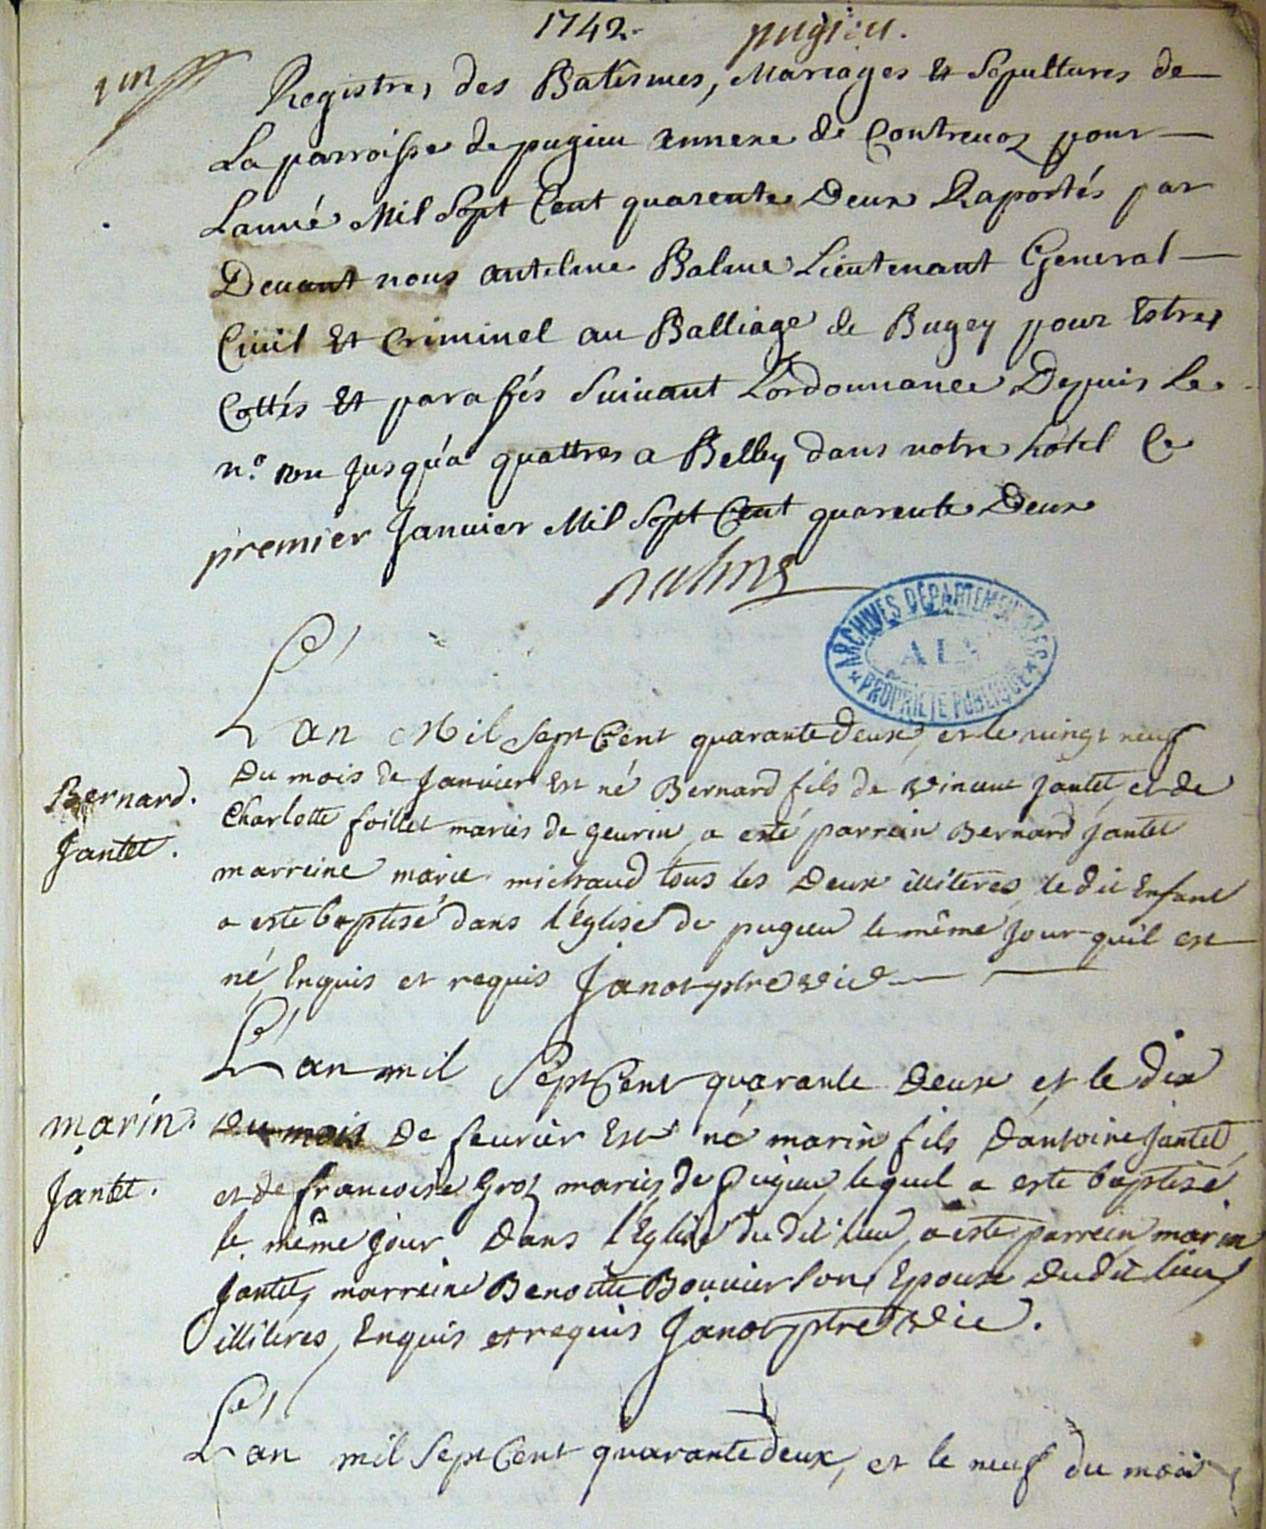 1742.
pugieu.
Registres des Batêsmes, Mariages Et Sepultures de
La parroisse de pugieu annexe de Contrevoz pour
Lanné Mil Sept Cent quarente Deux Raportés par
Devant nous antelme Balme Lieutenant General
Civil Et Criminel au Balliage de Bugey pour Estres
Cottés Et parafés Suivant Lordonnance Depuis Le
n.º un Jusqu'a quattres a Belley dans notre hotel Ce
premier Janvier Mil Sept Cent quarente Deux
Balme
ARCHIVES DÉPARTEMENTALES
AIN
PROPRIÉTÉ PUBLIQUE
L'an Mil Sept Cent quarante deux, et le vingt neuf
Bernard
Jantet.
Du mois de Janvier Est né Bernard fils de vincent Jantet, et de
Charlotte foillet mariés de Geurin, a esté parrein Bernard Jantet
marreine marie michaud tous les Deux illiteres, le dit Enfant
a esté baptisé dans l'église de pugieu le même Jour quil est
né, Enquis et requis Janot ptre vic
L'an mil Sept Cent quarante Deux et le dix
marin.
Jantet.
Du mois De fevrier Est né marin fils D'antoine Jantet,
et de francoise Groz mariés de Pugieu, lequel a esté baptisé
le même Jour Dans l'Eglise du dit lieu, a esté parrein marin
Jantet, marreine Benoitte Bouvier son Epouse Dudit lieu
illiteres, Enquis et requis Janot ptre vic.
L'an mil Sept Cent quarante deux, et le neuf du mois